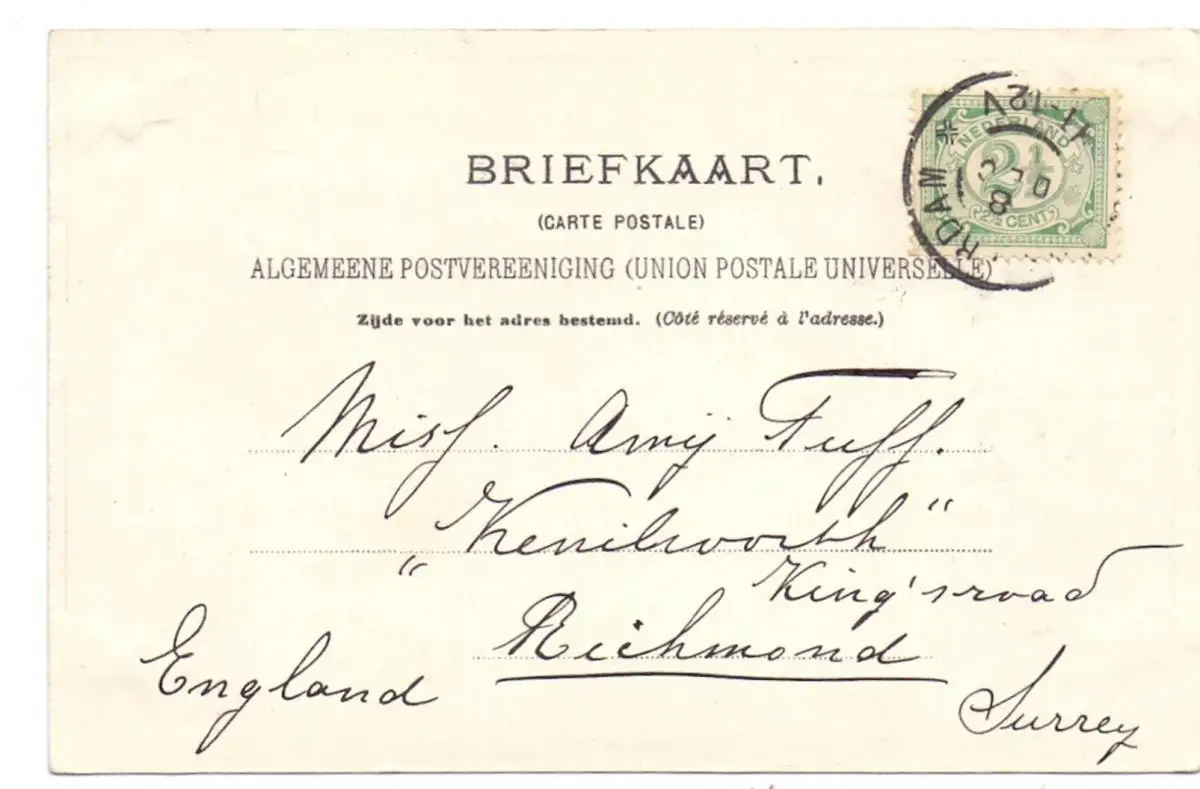 BRIEFKAART.
(CARTE POSTALE)
ALGEMEENE POSTVEREENIGING (UNION POSTALE UNIVERSELLE)
Zijde voor het adres bestemd. (Côté réservé à l'adresse.)
NEDERLAND
2½
2½ CENT
RDAM
11-12V
8
Miss. Amy Tuff.
"Kenilworth"
King'sroad
Richmond
England
Surrey